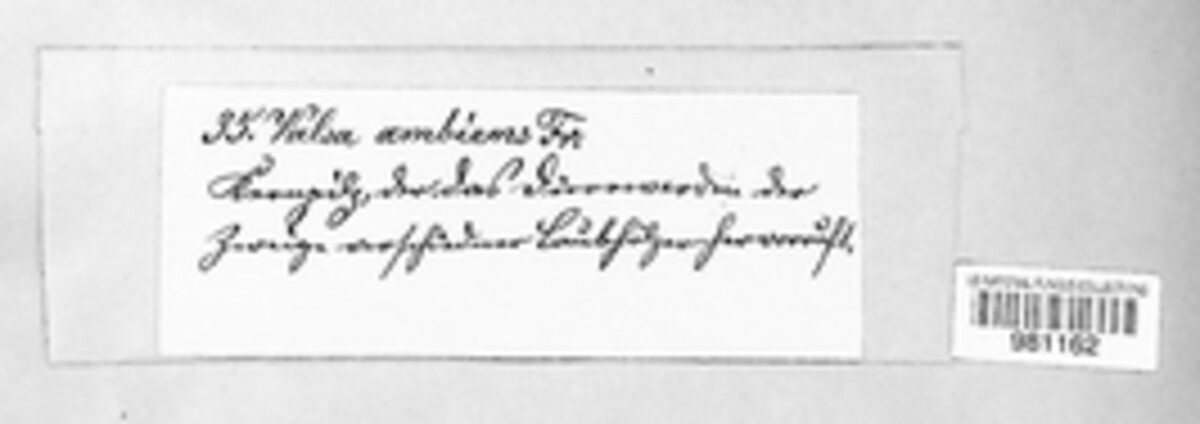 35. Valsa ambiens Fr
Kernpilz, der das Dürrewerden der
Zweige verschiedner Laubhölzer hervorruft.
981162